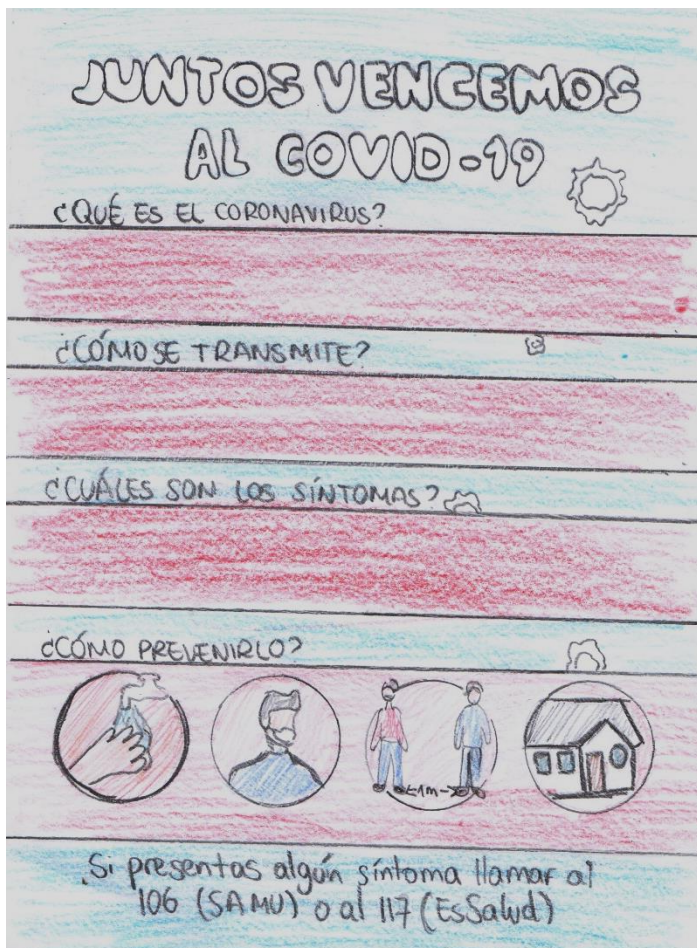 JUNTOS VENCEMOS
AL COVID-19
¿QUÉ ES EL CORONAVIRUS?
¿CÓMO SE TRANSMITE?
¿CUÁLES SON LOS SÍNTOMAS?
¿CÓMO PREVENIRLO?
←1m→
Si presentas algún síntoma llamar al
106 (SAMU) o al 117 (EsSalud)